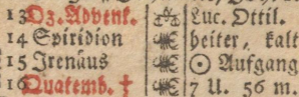 13 Oz. Advent. Luc. Ottil.
14 Spiridion heiter, kalt
15 Irenäus ☉ Aufgang
16 Quatemb. † 7 U. 56 m.